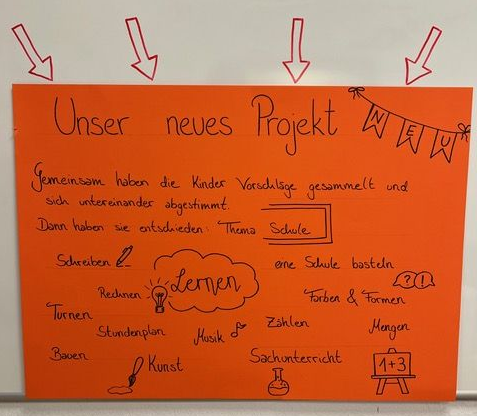 Unser neues Projekt
NEU
Gemeinsam haben die Kinder Vorschläge gesammelt und
sich untereinander abgestimmt.
Dann haben sie entschieden: Thema Schule
Schreiben
eine Schule basteln
Lernen
?!
Rechnen
Farben & Formen
Turnen
Stundenplan
Musik
Zählen
Mengen
Bauen
Kunst
Sachunterricht
1+3